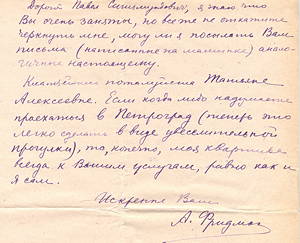 Дорогой Павел Сигизмундович, я знаю что
Вы очень заняты, но все же не откажите
черкнуть мне, могу ли я посылать Вам
письма (написанные на машинке) анало-
гичные настоящему.
Кланяйтесь пожалуйста Татьяне
Алексеевне. Если когда либо надумаете
проехаться в Петроград (теперь это
легко сделать в виде увеселительной
прогулки), то, конечно, моя квартира
всегда к Вашим услугам, равно как и
я сам.
Искренне Ваш
А. Фридман